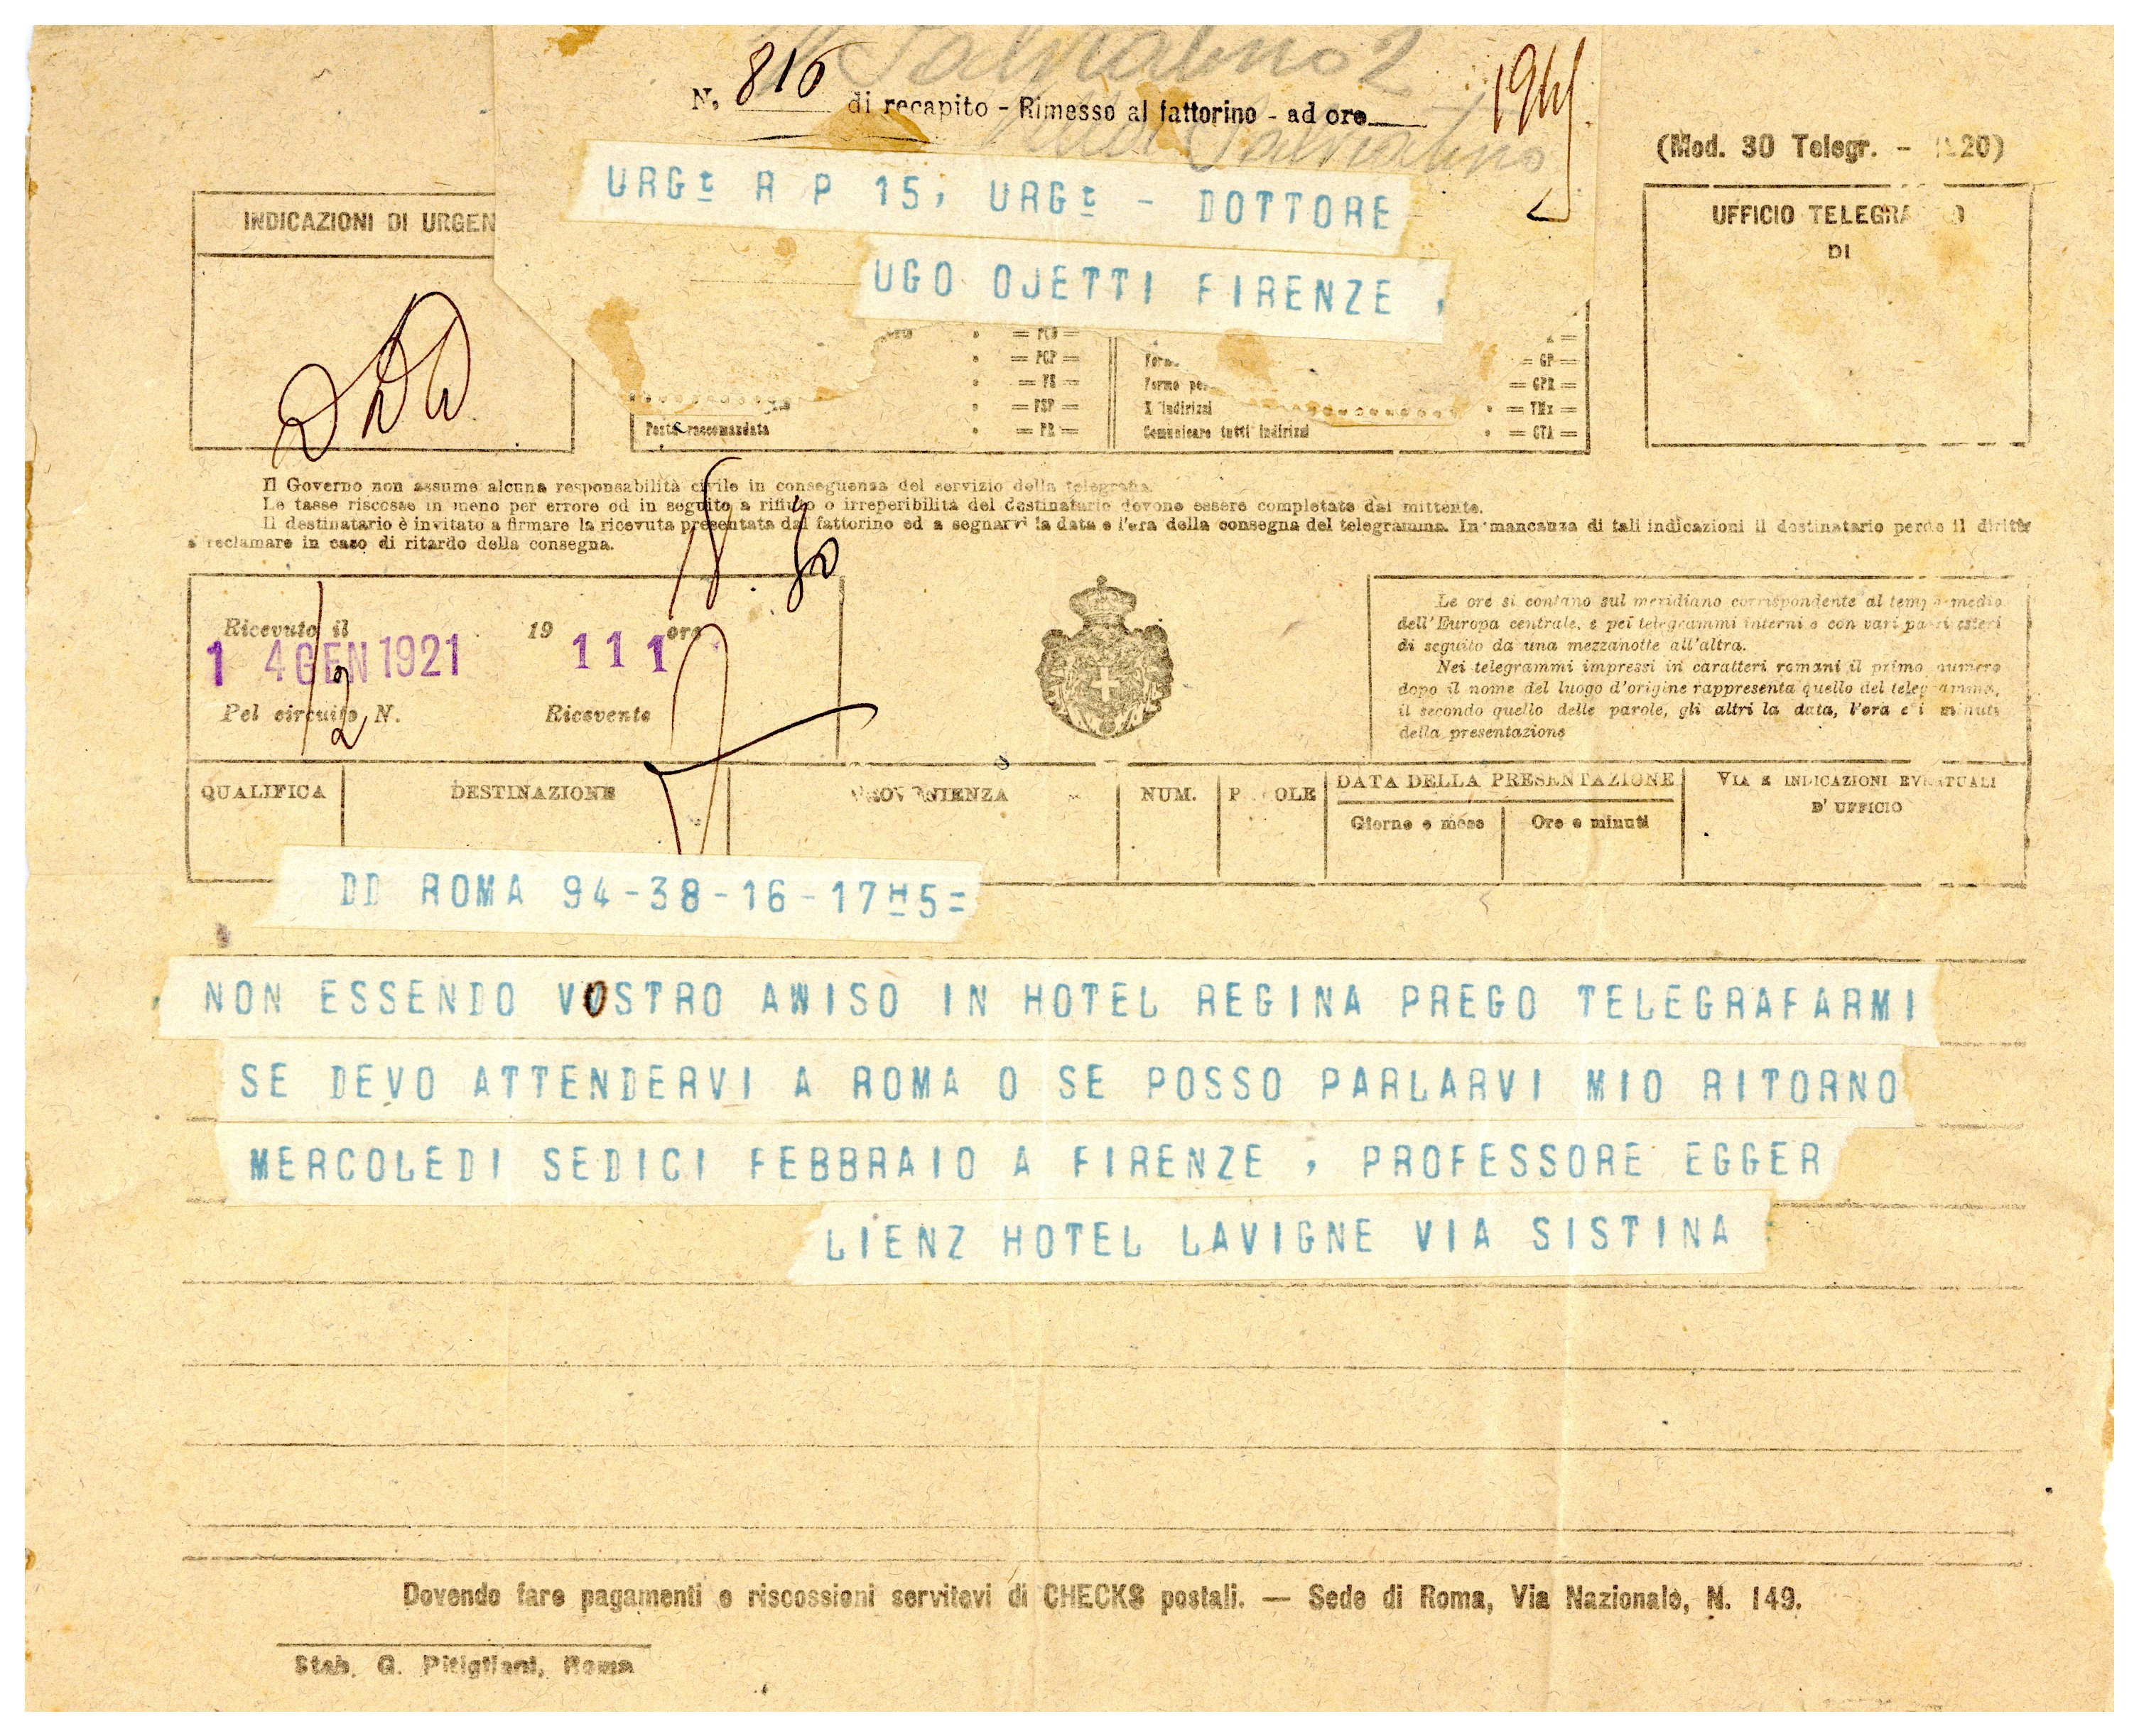 Salviatino 2
N. 816 di recapito - Rimesso al fattorino - ad ore
Salviatino
(Mod. 30 Telegr. - 20)
URGt R P 15, URGt - DOTTORE
UGO OJETTI FIRENZE ,
INDICAZIONI DI URGEN
UFFICIO TELEGRA O
DI
= PCP = = GP =
Forme per = GPR =
X indirizzi = TMx =
= PSP =
Posta raccomandata = PR = Comunicare tutti indirizzi = CTA =
Il Governo non assume alcuna responsabilità civile in conseguenza del servizio della telegrafia.
Le tasse riscosse in meno per errore od in seguito a rifiuto o irreperibilità del destinatario devono essere completate dal mittente.
Il destinatario è invitato a firmare la ricevuta presentata dal fattorino ed a segnarvi la data e l'ora della consegna del telegramma. In mancanza di tali indicazioni il destinatario perde il diritto
a reclamare in caso di ritardo della consegna.
Ricevuto il 19 ore
1 4 GEN 1921 111
Pel circuito N. Ricevente
Le ore si contano sul meridiano corrispondente al tempo medio
dell'Europa centrale, e pei telegrammi interni e con vari paesi esteri
di seguito da una mezzanotte all'altra.
Nei telegrammi impressi in caratteri romani il primo numero
dopo il nome del luogo d'origine rappresenta quello del telegramma,
il secondo quello delle parole, gli altri la data, l'ora e i minuti
della presentazione
QUALIFICA DESTINAZIONE PROVENIENZA NUM. PAROLE DATA DELLA PRESENTAZIONE VIA E INDICAZIONI EVENTUALI
Giorno e mese Ore e minuti D' UFFICIO
DD ROMA 94-38-16-17H5=
NON ESSENDO VOSTRO AWISO IN HOTEL REGINA PREGO TELEGRAFARMI
SE DEVO ATTENDERVI A ROMA O SE POSSO PARLARVI MIO RITORNO
MERCOLEDI SEDICI FEBBRAIO A FIRENZE , PROFESSORE EGGER
LIENZ HOTEL LAVIGNE VIA SISTINA
Dovendo fare pagamenti e riscossioni servitevi di CHECKS postali. — Sede di Roma, Via Nazionale, N. 149.
Stab. G. Pitigliani, Roma